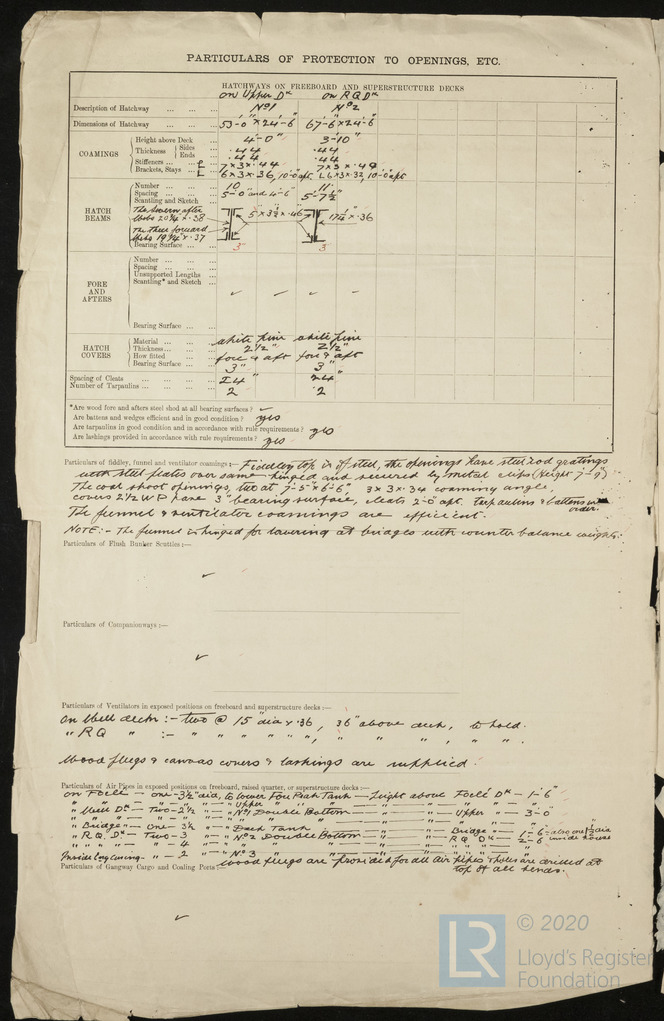 PARTICULARS OF PROTECTION TO OPENINGS, ETC.
HATCHWAYS ON FREEBOARD AND SUPERSTRUCTURE DECKS
on Upper Dk on RQ Dk
Description of Hatchway ... ... ... No 1 No 2
Dimensions of Hatchway ... ... ... 53'-0" x 24'-6" 67'-6" x 24'-6"
COAMINGS
Height above Deck ... 4'-0" 3'-10"
Thickness Sides ... .44 .44
Ends ... .44 .44
Stiffeners ... 7 x 3 x .44 7 x 3 x .40
Brackets, Stays ... 6 x 3 x .36, 10'-0" apt. L6 x 3 x .32, 10'-0" apt
HATCH BEAMS
Number ... ... ... 10 11
Spacing ... ... ... 5'-0" and 4'-6" 5'-7½"
Scantling and Sketch
The seven after
Webs 20¾ x .38 5" x 3½ x .46 17½" x .36
The three forward
Webs 19¾" x .37
Bearing Surface ... ... 3" 3
FORE AND AFTERS
Number ... ... ...
Spacing ... ... ...
Unsupported Lengths
Scantling* and Sketch
✓ ✓ ✓ ✓
Bearing Surface ... ...
HATCH COVERS
Material ... ... ... white pine white pine
Thickness ... ... ... 2½" 2½"
How fitted ... ... fore & aft fore & aft
Bearing Surface ... 3" 3"
Spacing of Cleats ... ... ... ... 24" 24"
Number of Tarpaulins ... ... ... 2 2
*Are wood fore and afters steel shod at all bearing surfaces? ✓
Are battens and wedges efficient and in good condition? yes
Are tarpaulins in good condition and in accordance with rule requirements? yes
Are lashings provided in accordance with rule requirements? yes
Particulars of fiddley, funnel and ventilator coamings:— Fiddley top is of steel, the openings have steel rod gratings
with steel plates over same - hinged and secured by metal clips (Height 7'-9")
The coal shoot openings, two at 7'-5" x 6'-6", 3 x 3 x .34 coaming angle,
covers 2½ W P have 3" bearing surface, cleats 2'-0" apt. tarpaulins & battens in order.
The funnel & ventilator coamings are efficient.
NOTE:- The funnel is hinged for lowering at bridges with counter balance weights.
Particulars of Flush Bunker Scuttles:—
✓
Particulars of Companionways:—
✓
Particulars of Ventilators in exposed positions on freeboard and superstructure decks:—
On Well deck:- two @ 15" dia x .36, 36" above deck, to hold.
" RQ " :- " " " " " , " " " , " " .
Wood plugs & canvas covers & lashings are supplied.
Particulars of Air Pipes in exposed positions on freeboard, raised quarter, or superstructure decks:—
on Focle — one - 3½" dia, to lower Fore Peak Tank — height above Focle Dk — 1'-6"
" " — " — " " — " Upper " " — " — " — "
" Well Dk — Two - 2½ " — " No 1 Double Bottom — " — Upper " — 3'-0
" " — " — " " — " " " — " — " — "
" Bridge — One - 3½ " — " Deep Tank — " — Bridge " — " 
" R.Q. Dk — Two - 3 " — " No 2 Double Bottom — " — R Q Dk — 2'-6 inside house
" " " — " - 4 " — " " " — " — " — "
Inside Eng casing - " - 2 " — " No 3
wood plugs are provided for all air pipes & holes are drilled at
top of all bends.
Particulars of Gangway Cargo and Coaling Ports:—
✓
LR
© 2020
Lloyd's Register
Foundation